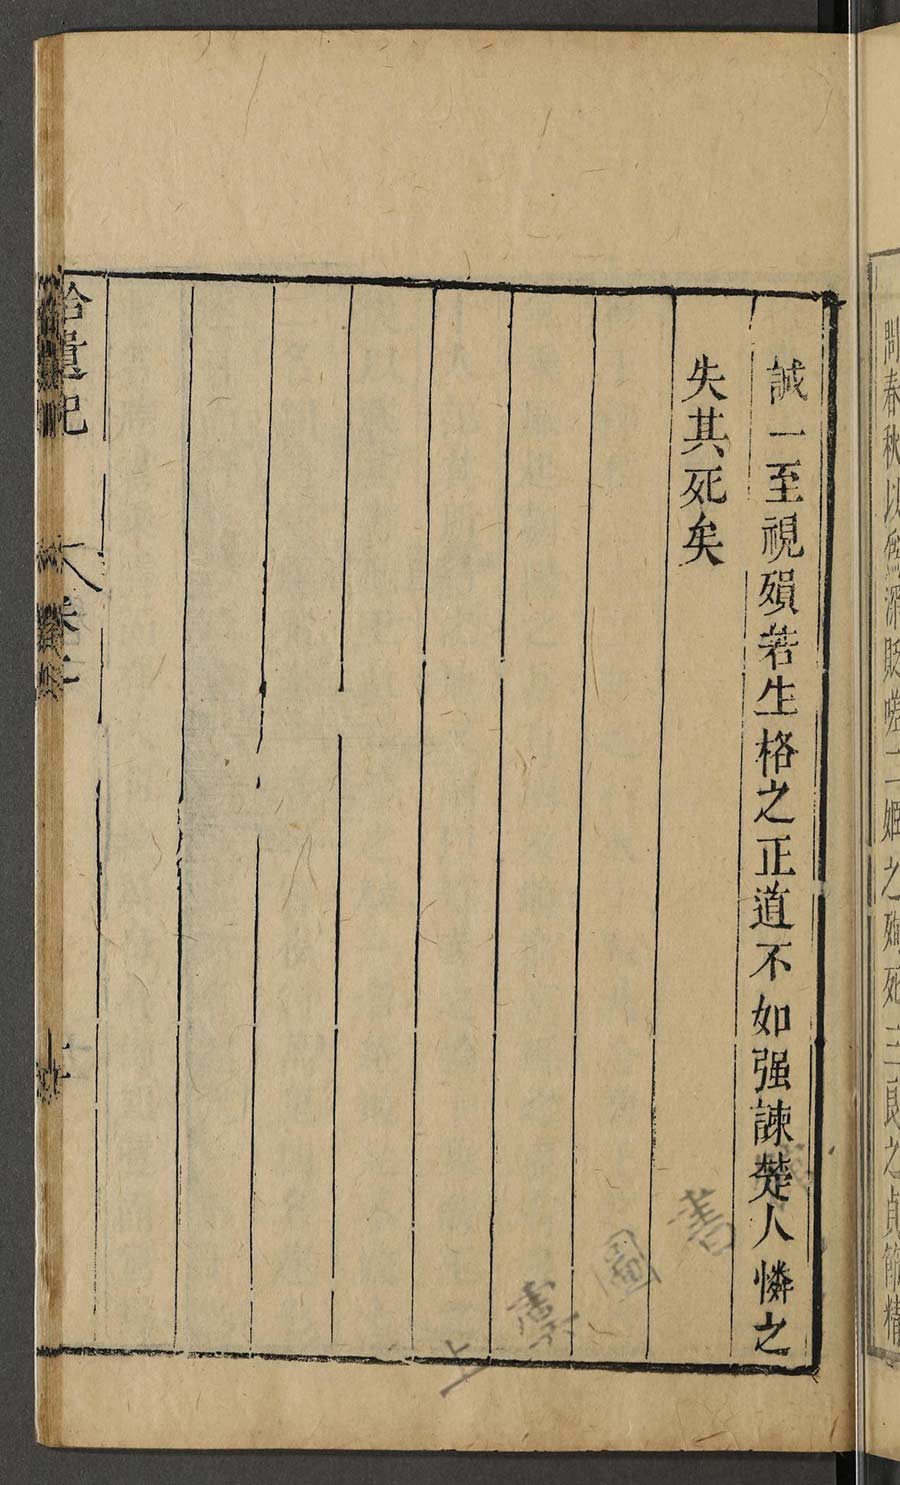 問春秋以爲深貶嗟二姬之殉死三良之貞節精
誠一至視殞若生格之正道不如强諫楚人憐之
失其死矣
拾遺記
卷二
十
上虞圖書